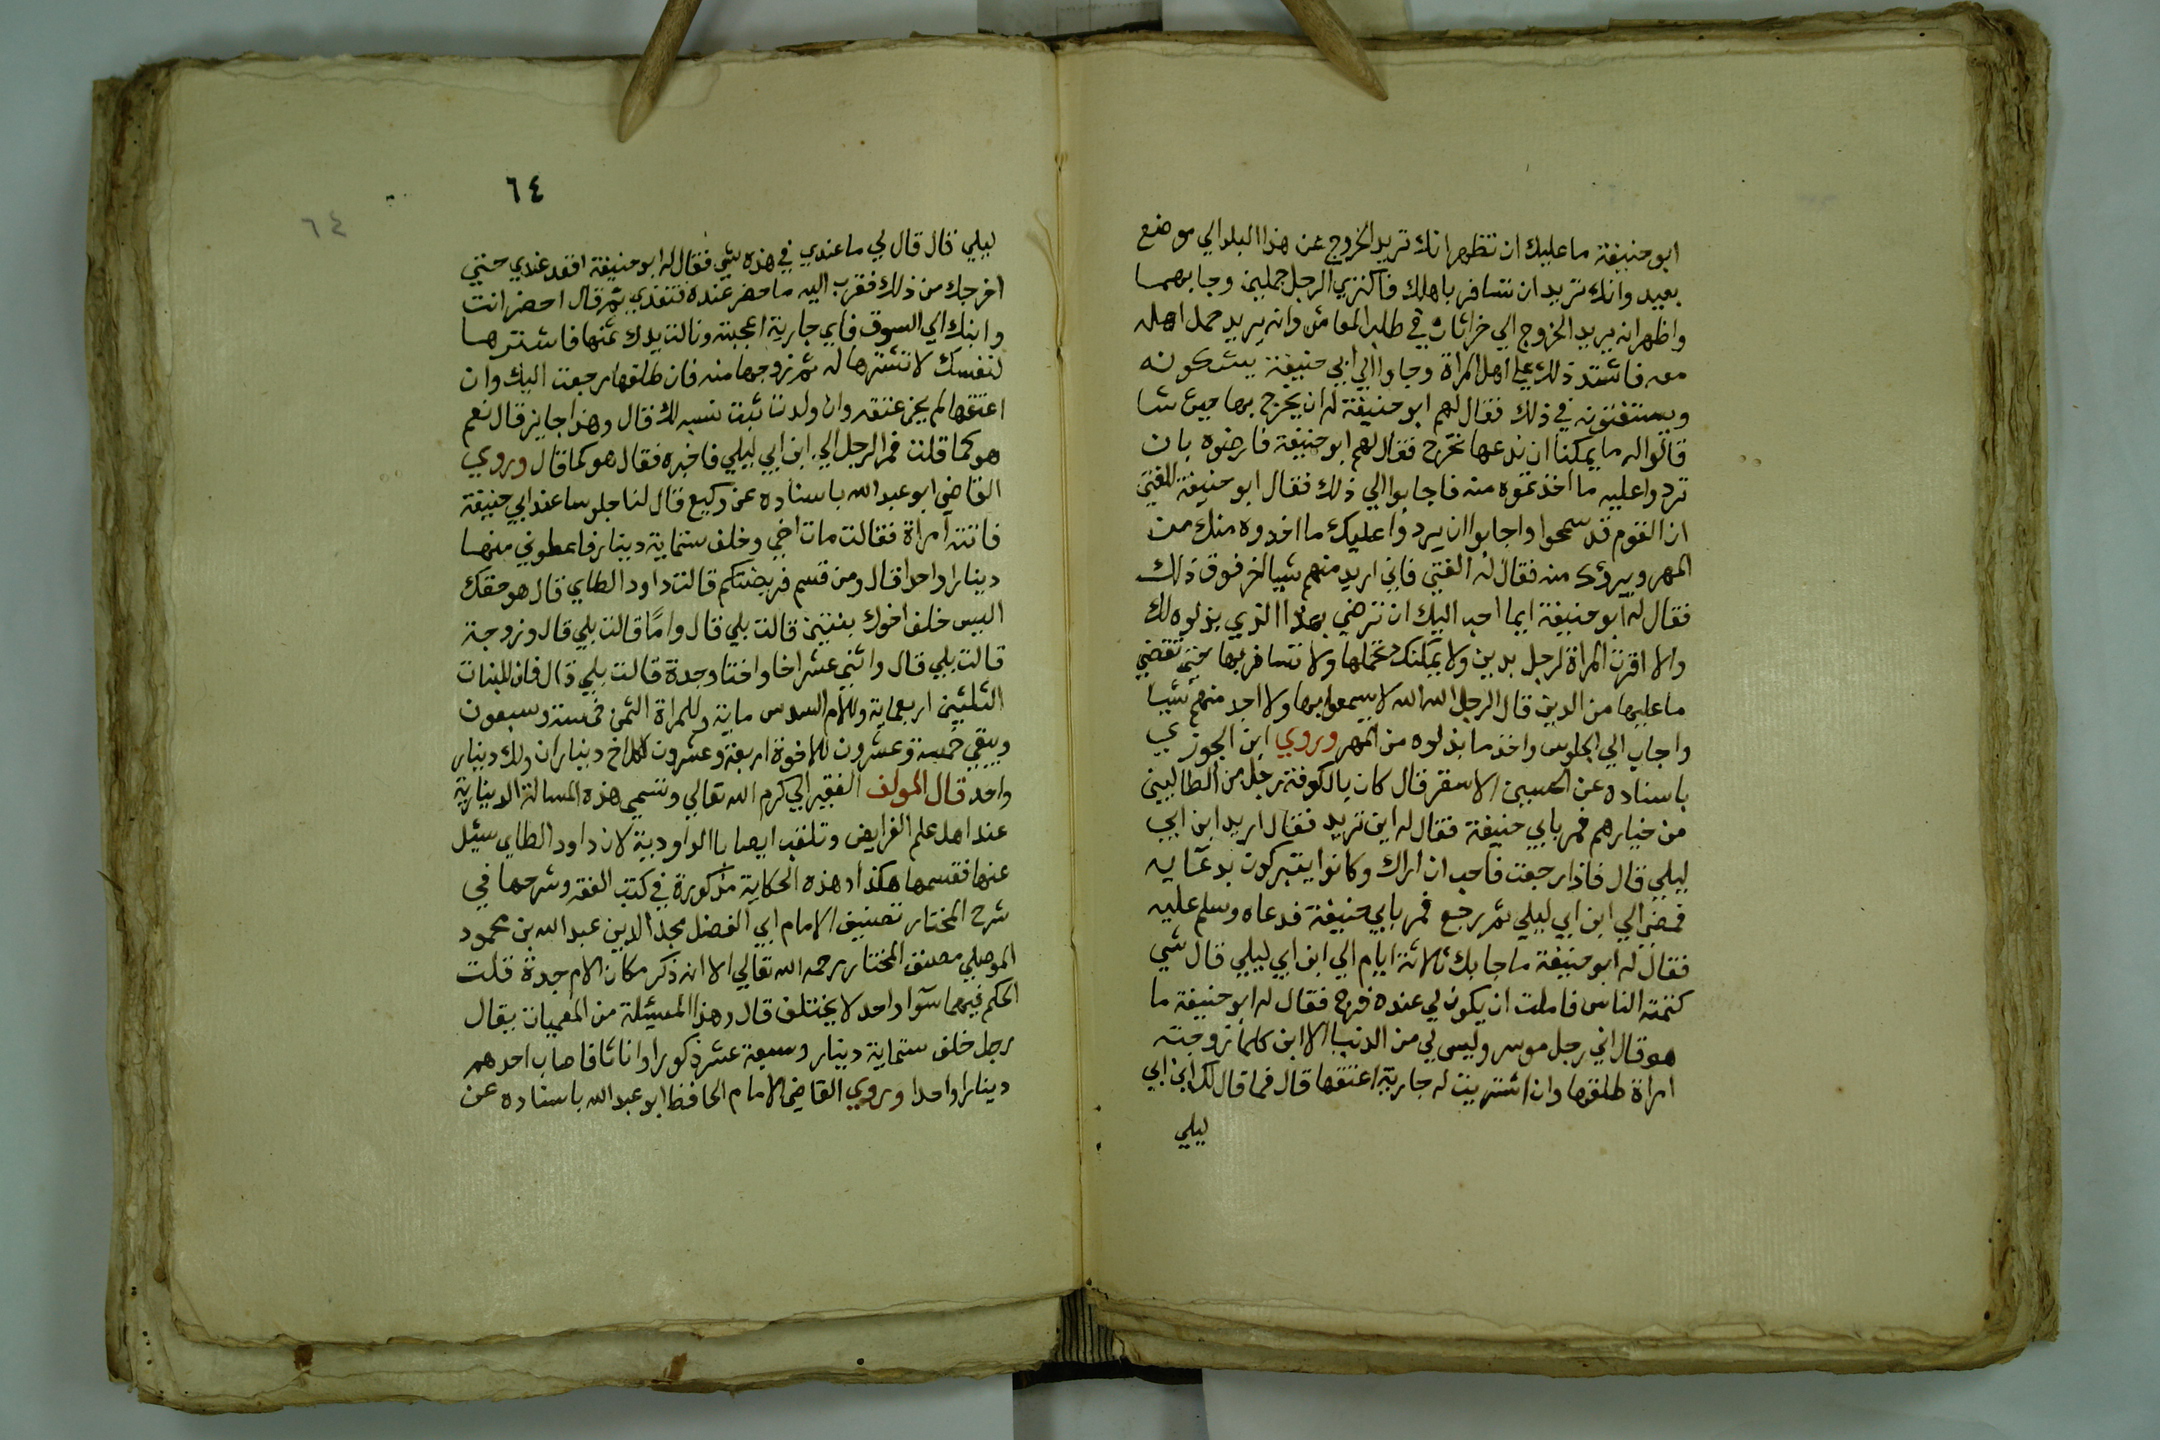 ابو حنيفة ما عليك ان تظهر انك تريد الخروج عن هذا البلد الي موضع
بعيد وانك تريد ان تسافر باهلك فاكتري الرجل جملين وجا بهما
واظهر انه يريد الخروج الي خراسان في طلب المعاش وانه يريد حمل اهله
معه فاشتد ذلك علي اهل المراة وجاوا الي ابي حنيفة يشكونه
ويستفتونه في ذلك فقال لهم ابو حنيفة له ان يخرج بها حيث شا
قالوا له ما يمكننا ان ندعها تخرج فقال لهم ابو حنيفة فارضوه بان
تردوا عليه ما اخذتموه منه فاجابوا الي ذلك فقال ابو حنيفة للفتي
ان القوم قد سمحوا واجابوا ان يردوا عليك ما اخذوه منك من
المهر ويبروك منه فقال له الفتي فاني اريد منهم شيا اخر فوق ذلك
فقال له ابو حنيفة ايما احب اليك ان ترضي بهذا الذي بذلوه لك
والا اقرت المراة لرجل بدين ولا يمكنك تحملها ولا تسافر بها حتي تقضي
ما عليها من الدين قال الرجل الله الله لا يسمعوا بها ولا اجد منهم شيا
واجاب الي الجلوس واخذ ما بذلوه من المهر وروي ابن الجوزي
باسناده عن الحسين الاسقر قال كان بالكوفة رجل من الطالبيين
من خيارهم فمر بابي حنيفة فقال له اين تريد فقال اريد ابن ابي
ليلي قال فاذا رجعت فاحب ان اراك وكانوا يتبركون بدعايه
فمضي الي ابن ابي ليلي ثم رجع فمر بابي حنيفة فدعاه وسلم عليه
فقال له ابو حنيفة ما جا بك ثلاثة ايام الي ابن ابي ليلي قال شي
كتمته الناس فاملت ان يكون لي عنده فرج فقال له ابو حنيفة ما
هو قال اني رجل موسر وليس لي من الدنيا الا ابن كلما زوجته
امراة طلقها وان اشتريت له جارية اعتقها قال فما قال لك ابن ابي
ليلي
٦٤
٦٤
ليلي قال قال لي ما عندي في هذه شي فقال له ابو حنيفة اقعد عندي حتي
اخرجك من ذلك فقرب اليه ما حضر عنده فتغدي ثم قال احضر انت
وابنك الي السوق فاي جارية اعجبته ونالت يدك ثمنها فاشترها
لنفسك لا تشترها له ثم زوجها منه فان طلقها رجعت اليك وان
اعتقها لم يجز عتقه وان ولدت ثبت نسبه لك قال وهذا جايز قال نعم
هو كما قلت فمر الرجل الي ابن ابي ليلي فاخبره فقال هو كما قال وروي
القاضي ابو عبد الله باسناده عن وكيع قال لنا جلوسا عند ابي حنيفة
فاتته امراة فقالت مات اخي وخلف ستماية دينار فاعطوني منها
دينارا واحدا قال ومن قسم فريضتكم قالت داود الطاي قال هو حقك
اليس خلف اخوك بنتين قالت بلي قال واما قالت بلي قال وزوجة
قالت بلي قال واثني عشر اخا واختا وجدة قالت بلي قال فان للبنات
الثلثين اربعماية وللام السدس ماية وللمراة الثمن خمسة وسبعون
ويبقي خمسة وعشرون للاخوة اربعة وعشرون لكل اخ ديناران ولك دينار
واحد قال المولف الفقير الي كرم الله تعالي وتسمي هذه المسالة الدينارية
عند اهل علم الفرايض وتلقب ايضا باالداودية لان داود الطاي سيئل
عنها فقسمها هكذا وهذه الحكاية مذكورة في كتب الفقه وشرحها في
شرح المختار تصنيف الامام ابي الفضل مجد الدين عبد الله بن محمود
الموصلي مصنف المختار رحمه الله تعالي الا انه ذكر مكان الام جدة قلت
الحكم فيهما سوا واحد لا يختلف قال وهذا المسيئلة من المعميات يقال
رجل خلف ستماية دينار وسبعة عشر ذكورا واناثا فاصاب احدهم
دينارا واحدا وروي القاضي الامام الحافظ ابو عبد الله باسناده عن